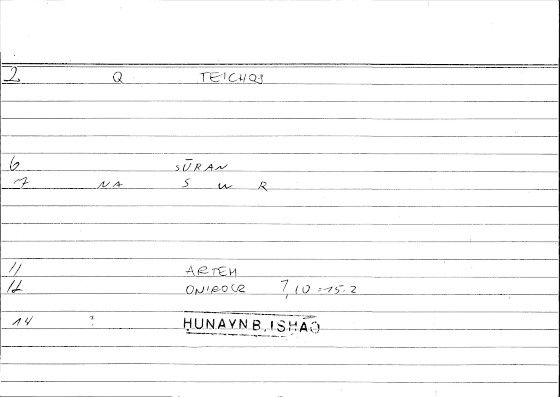 2 Q TEICHOS
6 SŪRAN
7 NA S W R
11 ARTEM
12 ONIROCR 7,10 = 15.2
14 ? ḤUNAYN B. ISḤĀQ